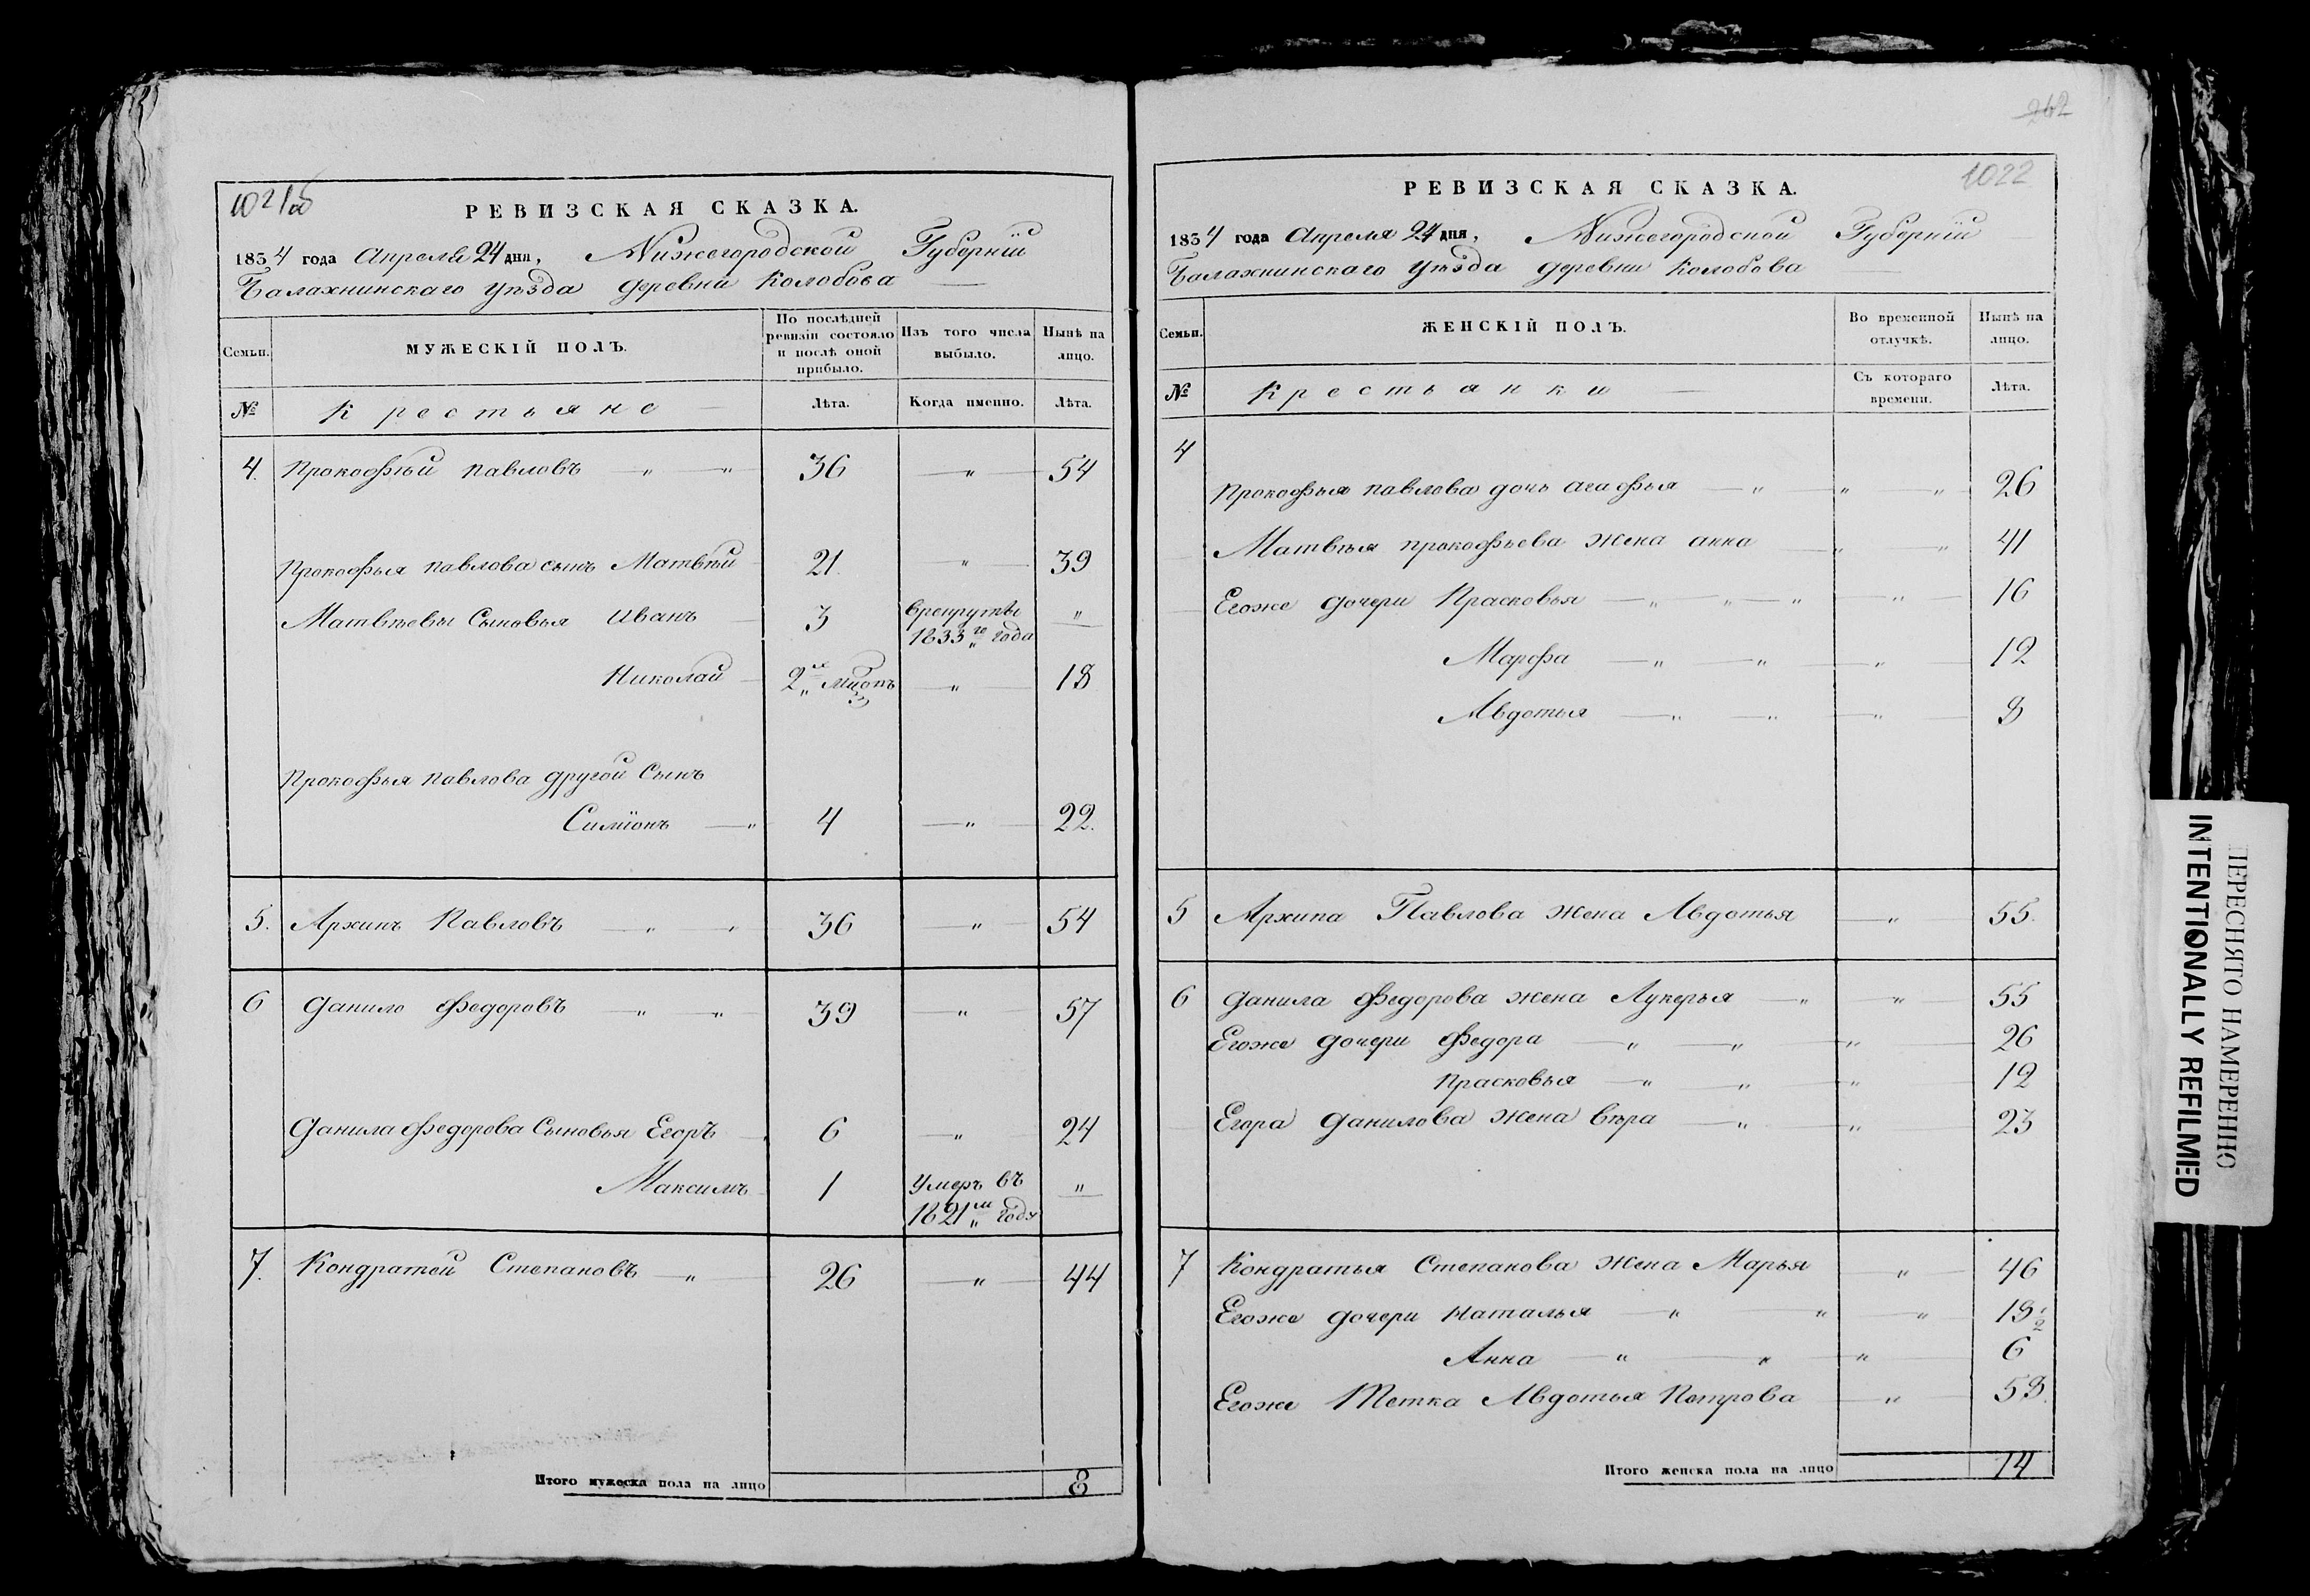 1021об
РЕВИЗСКАЯ СКАЗКА.
1834 года Апреля 24 дня, Нижегородской Губернiи
Балахнинскаго уѣзда деревни Колобова
Семьи.
МУЖЕСКIЙ ПОЛЪ.
По послѣдней ревизiи состояло и послѣ оной прибыло.
Изъ того числа выбыло.
Нынѣ на лицо.
№ Крестьяне Лѣта. Когда именно. Лѣта.
4. Прокофѣй Павловъ — " — " 36 — " — 54
Прокофья Павлова сынъ Матвѣй 21. — " — 39
Матвѣевы Сыновья Иванъ 3 врекруты 1833го года "
Николай 2й — " — 18
Прокофья Павлова другой Сынъ
Симiонъ — " 4 — " — 22.
5. Архипъ Павловъ — " — " 36 — " — 54
6 Данило Федоровъ — " — " 39 — " — 57
Данила Федорова Сыновья Егоръ 6 — " — 24
Максимъ 1 Умеръ въ 1821м году "
7. Кондратей Степановъ — " — 26 — " — 44
Итого мужеска пола на лицо 8
262
1022
РЕВИЗСКАЯ СКАЗКА.
1834 года Апреля 24 дня, Нижегородской Губернiи
Балахнинскаго уѣзда деревни Колобова
Семьи.
ЖЕНСКIЙ ПОЛЪ.
Во временной отлучкѣ.
Нынѣ на лицо.
№ Крестьянки Съ котораго времени. Лѣта.
4
Прокофья Павлова дочь Агафья — " — " — " — 26
Матвѣя Прокофьева Жена Анна — " — " — 41
Егоже дочери Прасковья — " — " — " — " — 16
Марфа — " — " — " — 12
Авдотья — " — " — " — 8
5 Архипа Павлова Жена Авдотья — " — 55.
6 Данила Федорова Жена Лукерья — " — " — 55
Егоже дочери Федора — " — " — " — 26
Прасковья — " — " — " — 12
Егора Данилова Жена Вѣра — " — " — 23
7 Кондратья Степанова Жена Марья — " — 46
Егоже дочери Наталья — " — " — " — 18½
Анна — " — " — " — 6
Егоже Тетка Авдотья Петрова — " — 58.
Итого женска пола на лицо 14
ПЕРЕСНЯТО НАМЕРЕННО
INTENTIONALLY REFILMED